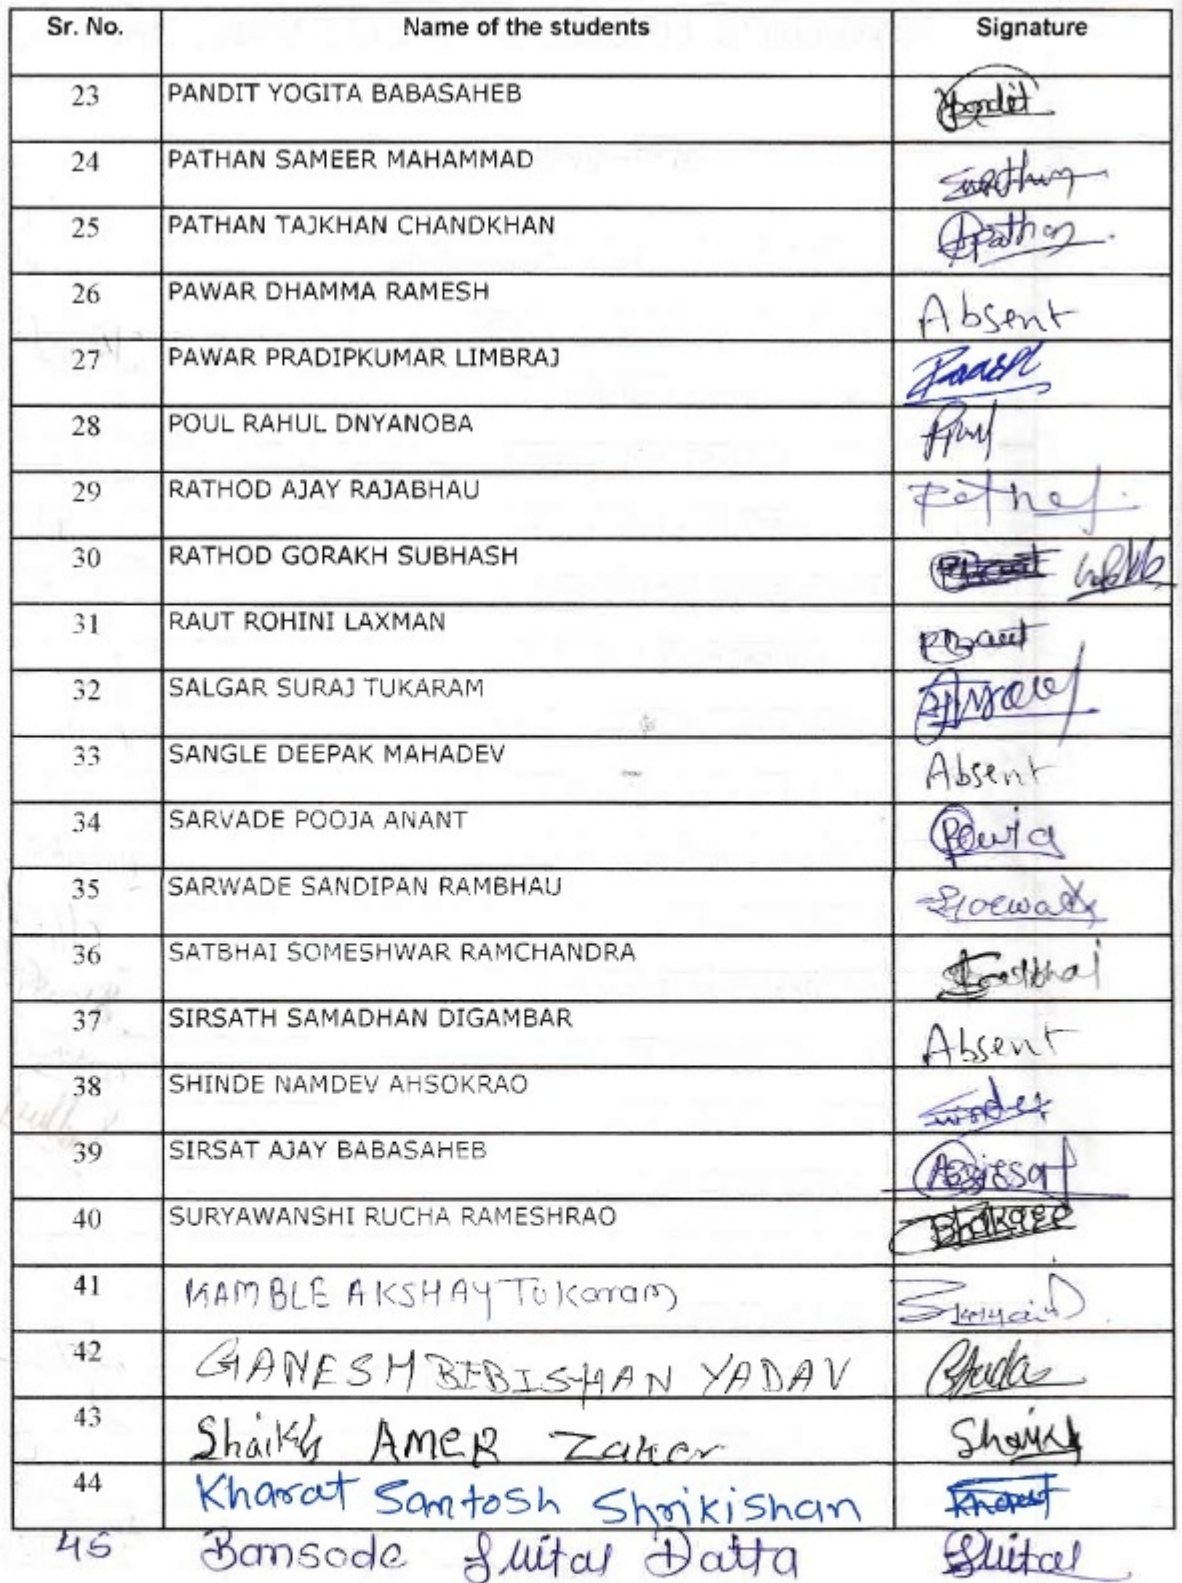 Sr. No. Name of the students Signature
23 PANDIT YOGITA BABASAHEB Ypandit
24 PATHAN SAMEER MAHAMMAD
25 PATHAN TAJKHAN CHANDKHAN Tpathan
26 PAWAR DHAMMA RAMESH Absent
27 PAWAR PRADIPKUMAR LIMBRAJ
28 POUL RAHUL DNYANOBA
29 RATHOD AJAY RAJABHAU
30 RATHOD GORAKH SUBHASH
31 RAUT ROHINI LAXMAN
32 SALGAR SURAJ TUKARAM
33 SANGLE DEEPAK MAHADEV Absent
34 SARVADE POOJA ANANT
35 SARWADE SANDIPAN RAMBHAU
36 SATBHAI SOMESHWAR RAMCHANDRA
37 SIRSATH SAMADHAN DIGAMBAR Absent
38 SHINDE NAMDEV AHSOKRAO
39 SIRSAT AJAY BABASAHEB
40 SURYAWANSHI RUCHA RAMESHRAO
41 KAMBLE AKSHAY TUKaram
42 GANESH BIBISHAN YADAV
43 Shaikh AMER Zaker Shaikh
44 Kharat Santosh Shrikishan Kharat
45 Bansode Shital Datta Shital